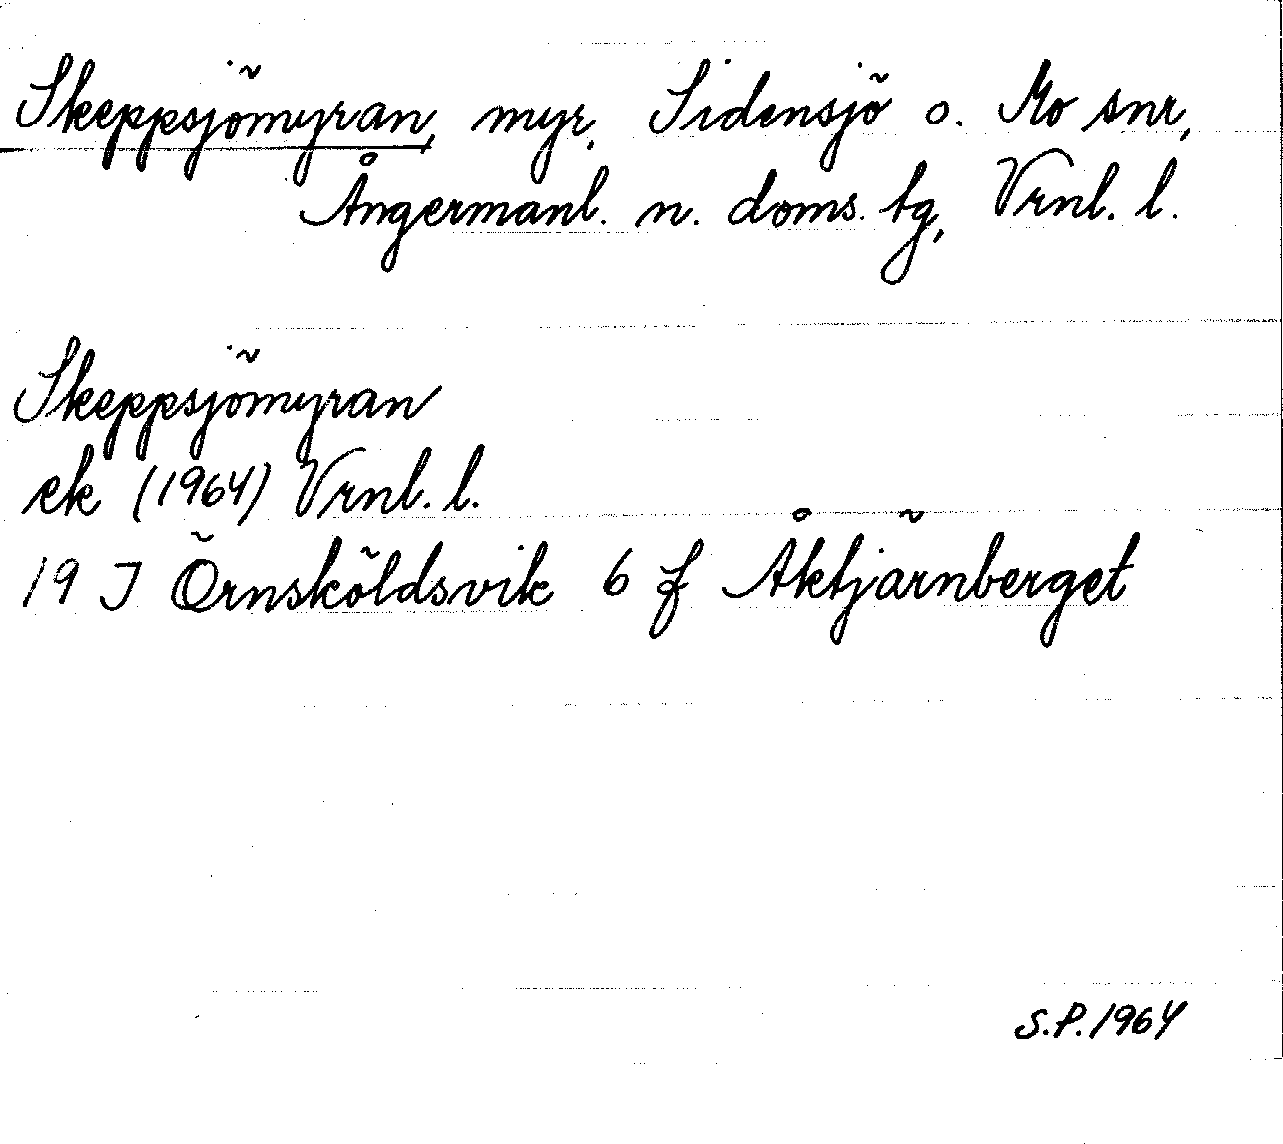 Skeppsjömyran, myr, Sidensjö o. Mo snr,
Ångermanl. n. doms. tg, Vrnl. l.
Skeppsjömyran
ek (1964) Vrnl. l.
19 J Örnsköldsvik 6 f Åktjärnberget
S.P. 1964